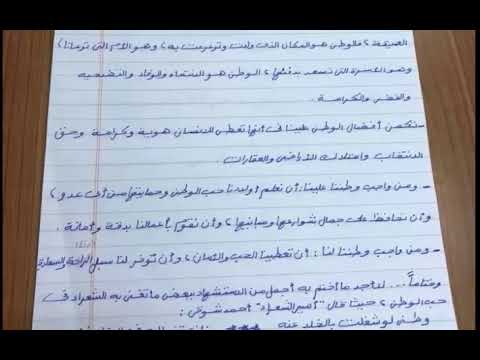 العميقة، فالوطن هو المكان الذي ولدت وترعرعت به، وهو الأم التي ترعانا،
وهو الأسرة التي نسعد بدفئها، الوطن هو الانتماء والوفاء والتضحية
والفخر والكرامة.
- تكمن أفضال الوطن علينا في أنها تعطي للإنسان هوية وكرامة وحق
الانتخاب وامتلاك الأراضي والعقارات.
- ومن واجب وطننا علينا: أن نعلم أولادنا حب الوطن وحمايتها من أي عدو،
وأن نحافظ على جمال شوارعها ومبانيها، وأن نقوم بأعمالنا بدقة وأمانة.
- ومن واجب وطننا لنا: أن تعطينا الحب والأمان، وأن توفر لنا سبل الراحة والسعادة
وختاماً... لا أجد ما أختم به أجمل من الاستشهاد ببعض ما تغنى به الشعراء في
حب الوطن، حيث قال "أمير الشعراء" أحمد شوقي:
وطني لو شغلت بالخلد عنه